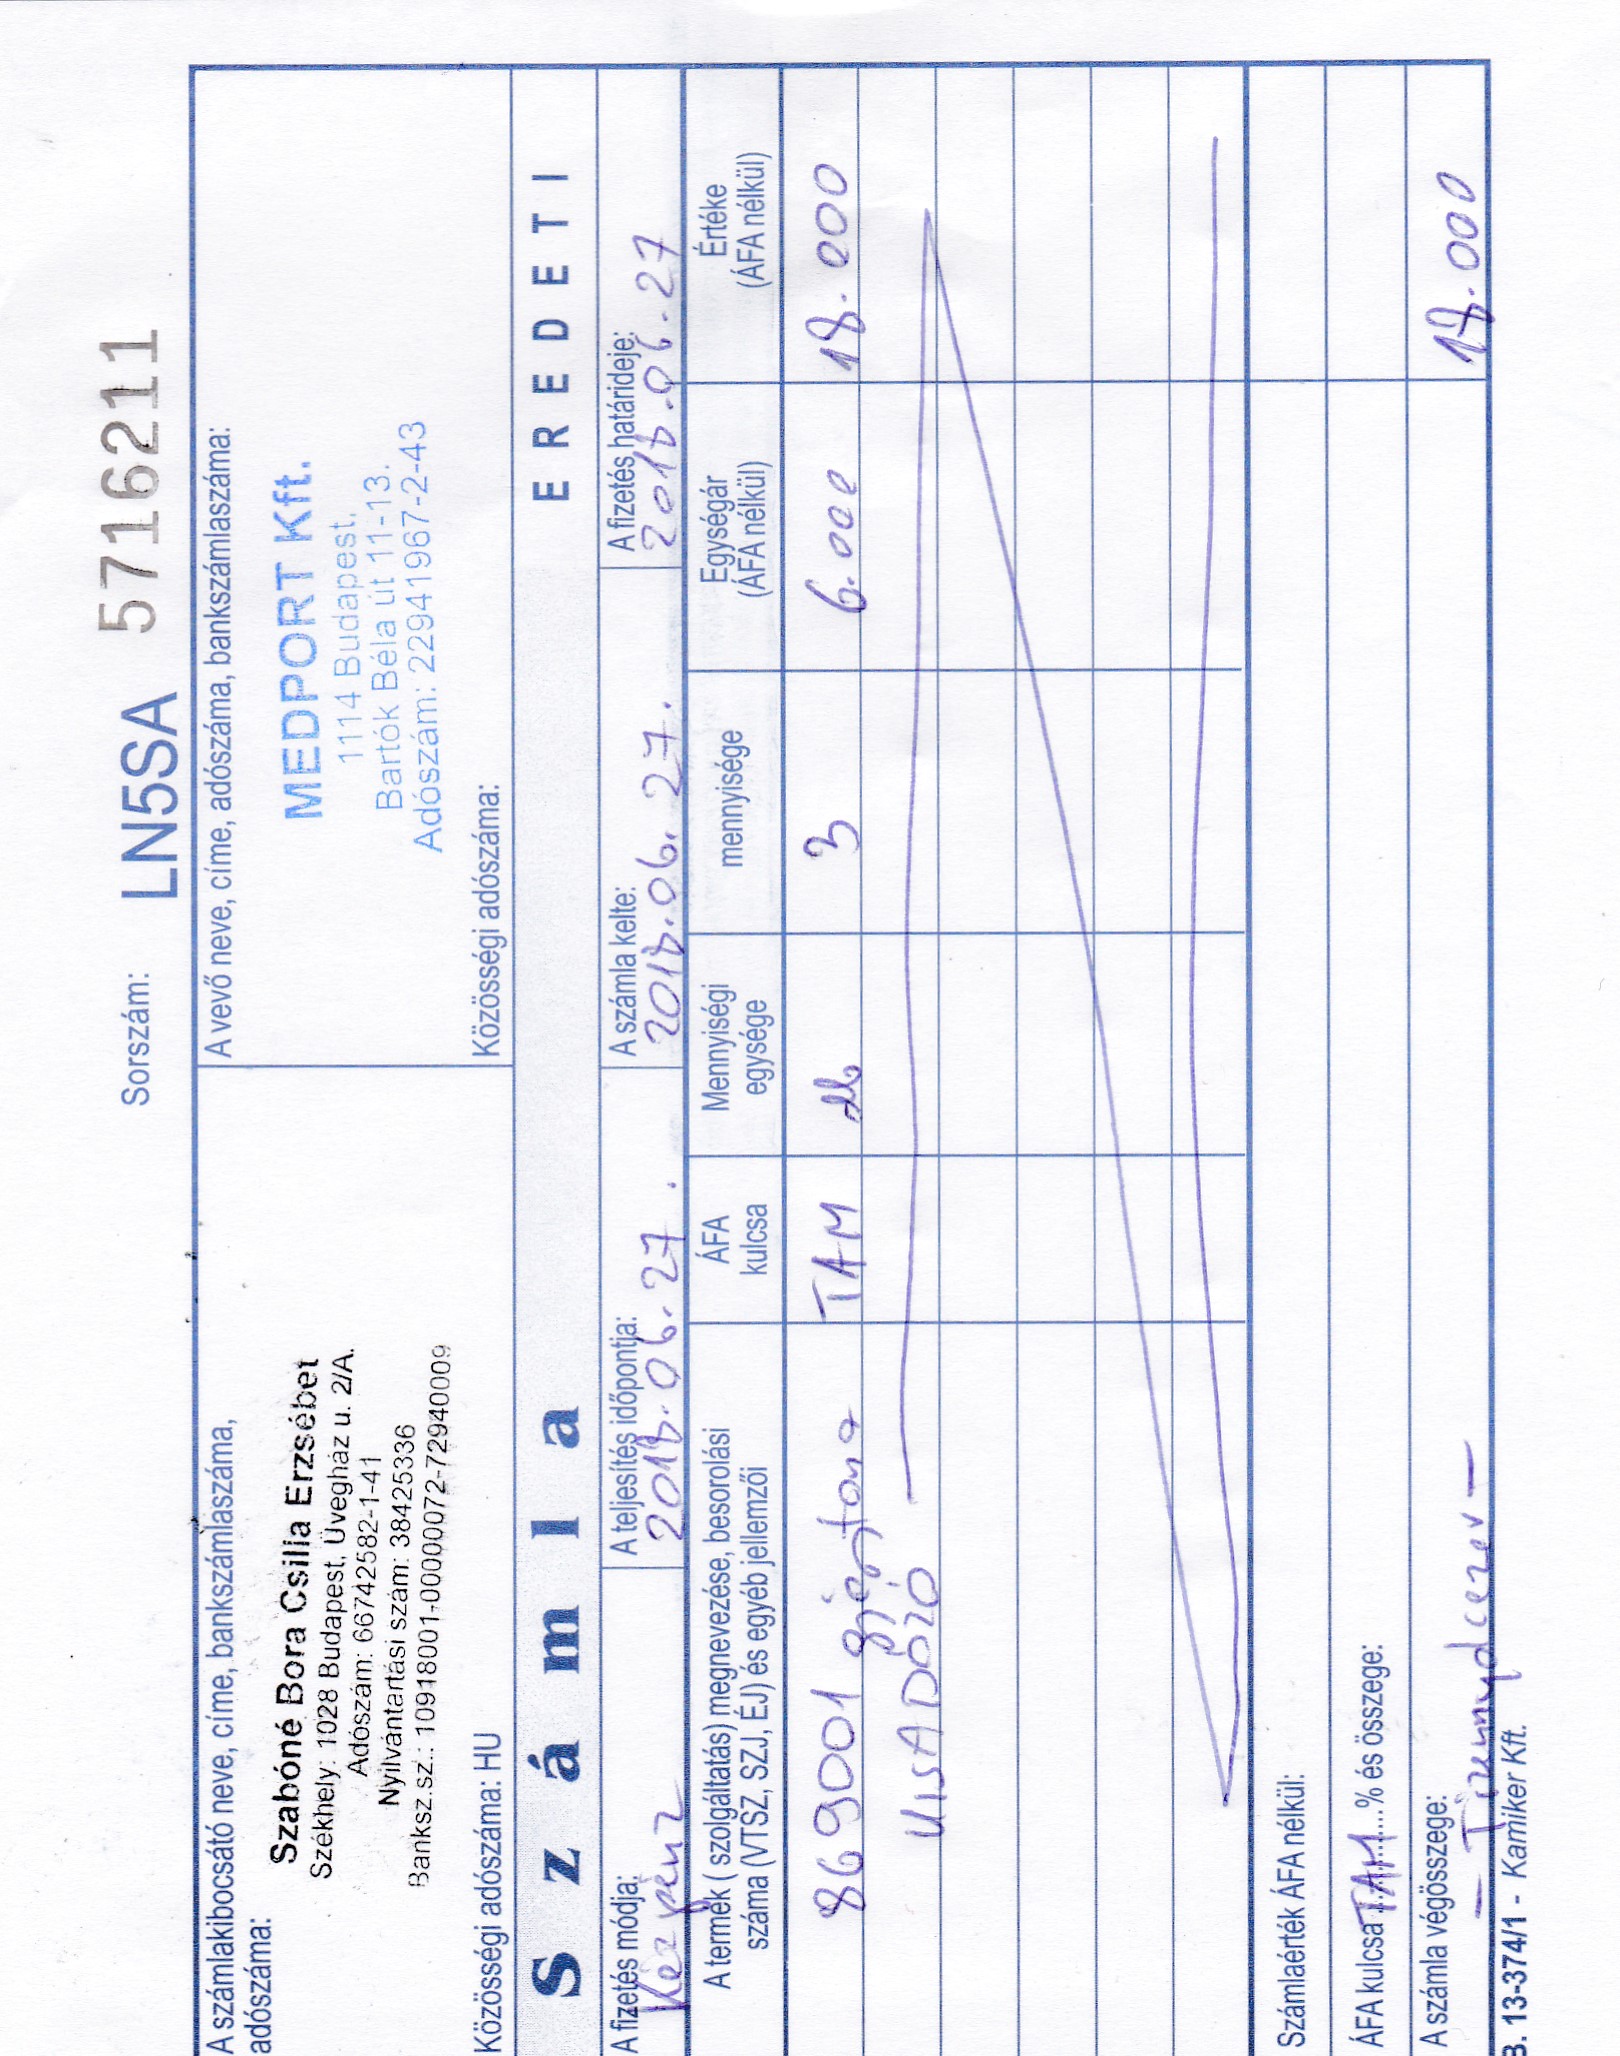 Sorszám: LN5SA 5716211
A számlakibocsátó neve, címe, bankszámlaszáma,
adószáma:
Szabóné Bora Csilla Erzsébet
Székhely: 1028 Budapest, Üvegház u. 2/A.
Adószám: 66742582-1-41
Nyilvántartási szám: 38425336
Banksz.sz.: 10918001-00000072-72940009
Közösségi adószáma: HU
A vevő neve, címe, adószáma, bankszámlaszáma:
MEDPORT Kft.
1114 Budapest,
Bartók Béla út 11-13.
Adószám: 22941967-2-43
Közösségi adószáma:
Számla
EREDETI
A fizetés módja:
Készpénz
A teljesítés időpontja:
2018.06.27.
A számla kelte:
2018.06.27.
A fizetés határideje:
2018.06.27
A termék ( szolgáltatás) megnevezése, besorolási
száma (VTSZ, SZJ, ÉJ) és egyéb jellemzői
ÁFA
kulcsa
Mennyiségi
egysége
mennyisége
Egységár
(ÁFA nélkül)
Értéke
(ÁFA nélkül)
869001 TAM db 3 6.000 18.000
KISADÓZÓ
Számlaérték ÁFA nélkül:
ÁFA kulcsa TAM % és összege:
A számla végösszege:
18.000
— Tizennyolcezer —
B. 13-374/1 - Kamiker Kft.